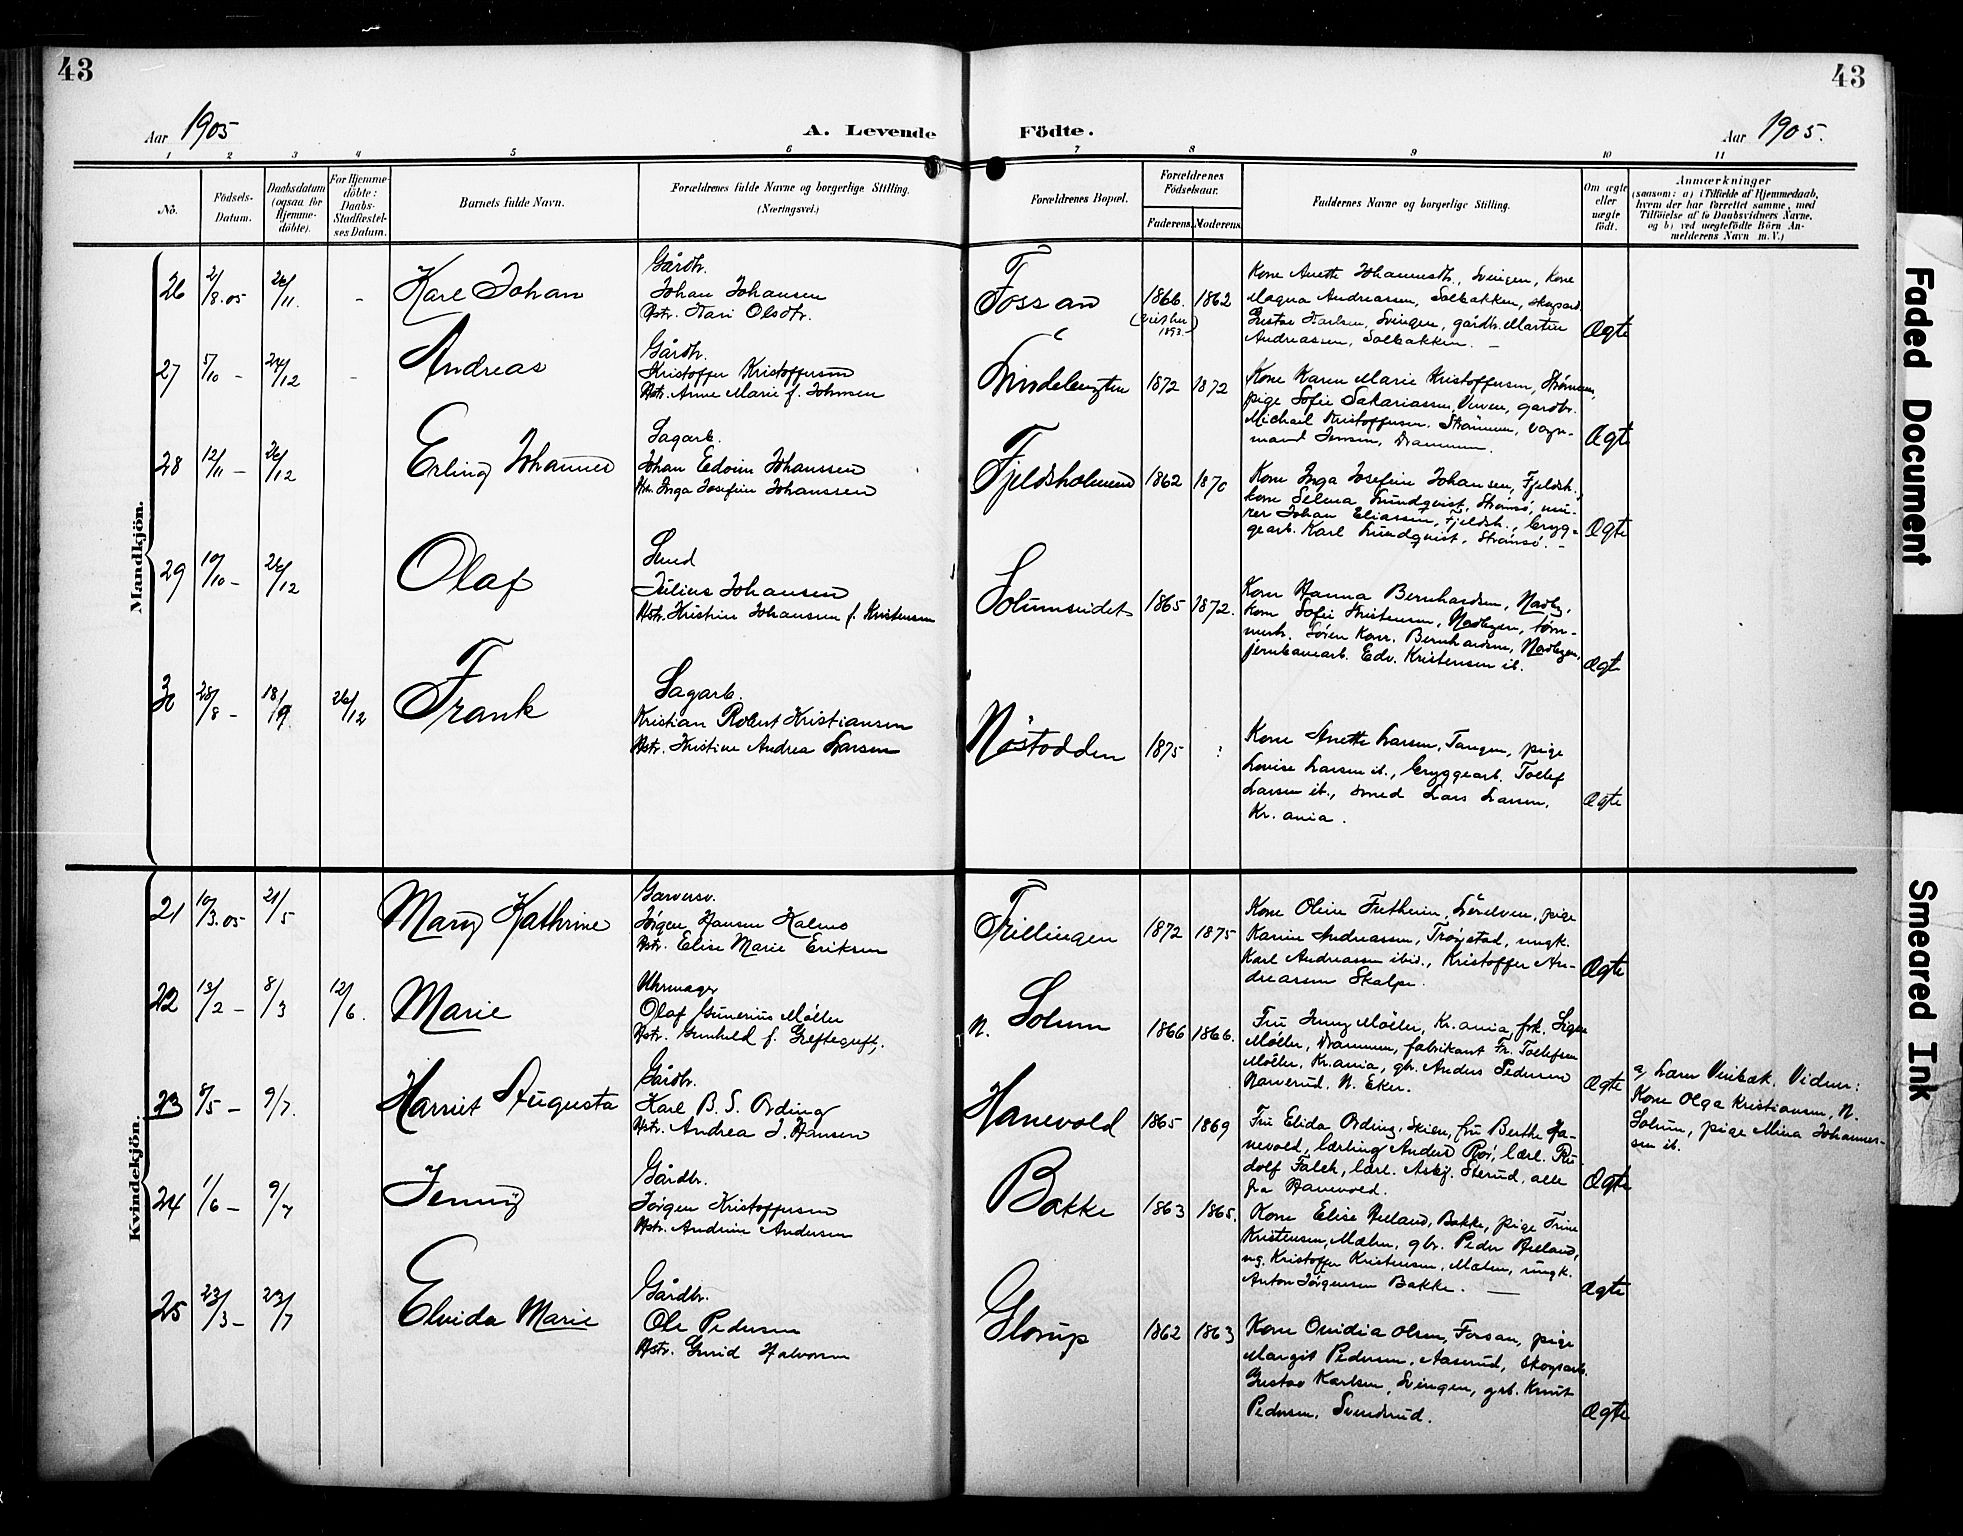 43
43
Aar 1905
A. Levende Födte.
Aar 1905.
1 2 3 4 5 6 7 8 9 10 11
No.
Födsels-
Datum.
Daabsdatum
(ogsaa for
Hjemme-
döbte).
For Hjemme-
döbte:
Daabs-
Stadfæstel-
ses Datum.
Barnets fulde Navn.
Forældrenes fulde Navne og borgerlige Stilling.
(Næringsvei.)
Forældrenes Bopæl.
Forældrenes
Födselsaar.
Faderens. Moderens.
Faddernes Navne og borgerlige Stilling.
Om ægte
eller
uægte
født.
Anmærkninger
(saasom: a) i Tilfælde af Hjemmedaab,
hvem der har forrettet samme, med
Tilföielse af to Daabsvidners Navne,
og b) ved uægtefödte Börn An-
melderens Navn m. V.)
Mandkjön.
26 2/8.05 26/11. - Karl Johan
Gårdbr.
Johan Johansen
Hstr. Kari Olsdtr.
Fossan 1866. 1862
1893
Kone Anette Johannesdtr., Svingen, Kone
Magna Andreassen, Solbakken, skogsarb.
Gustav Karlsen, Svingen, gårdbr. Martin
Andreassen, Solbakken. -
Ægte
27 5/10 - 24/12 - Andreas
Gårdbr.
Kristoffer Kristoffersen
Hstr. Anne Marie f. Johnsen
1872 1872
Kone Karen Marie Kristoffersen, Strømmen,
pige Sofie Sakariassen, Verven, gardbr.
Michael Kristoffersen, Strømmen, vogn-
mand Jensen, Drammen.
Ægte
28 12/11 - 26/12 Erling Johannes
Sagarb.
Johan Edvin Johanssen
Hstr. Inga Josefine Johanssen
Fjeldsholmen 1862 1870
Kone Inga Josefine Johansen, Fjeldsh.
kone Selma Lundqvist, Strømsø, mu-
rer Johan Eliassen, Fjeldsh., brygg-
gearb. Karl Lundqvist, Strømsø. -
Ægte
29 10/10 - 26/12 Olaf
Smed
Julius Johansen
Hstr. Kristine Johansen f. Kristensen
Solumseidet 1865 1872.
Kone Hanna Bernhardsen, Nadby,
kone Sofie Kristensen, Nadbyen, tøm-
merh. Søren Konr. Bernhardsen, Nadbyen,
jernbanearb. Edv. Kristensen ib.
Ægte
30 28/8 - 18/9. 26/12 Frank
Sagarb.
Kristian Robert Kristiansen
Hstr. Kristine Andrea Larsen
Nøstodden 1875 ?
Kone Anette Larsen, Tangen, pige
Lovise Larsen ib., bryggearb. Tollef
Larsen ib., smed Lars Larsen,
Kr.ania.
Ægte
Kvindekjön.
21 10/3.05 21/5 Mary Kathrine
Garversv.
Jörgen Hansen Holmo
Hstr. Elise Marie Eriksen
Trillingen 1872 1875
Kone Oline Fretheim, pige
Karine Andreassen, Trøgstad, ungk.
Karl Andreassen ibid., Kristoffer An-
dreassen Skalpe.
Ægte
22 13/2 - 8/3 12/6. Marie
Uhrmager
Olaf Gunerius Möller
Hstr. Gunhild f. Gröftegreff.
N. Solum 1866 1866.
Fru Jenny Möller, Kr.ania, frk. Signe
Möller, Drammen, fabrikant Fr. Tollefsen
Möller, Kr.ania, gbr. Anders Pedersen
N. Eker.
Ægte
23 8/5 - 9/7. Harriet Augusta
Gårdbr.
Karl B. S. Ording
Hstr. Andrea J. Hansen
Hanevold 1865 1869
Fru Elida Ording, Skien, fru Berthe Ha-
nevold, lærling Anders Roi, lærl. Ru-
dolf Falck, lærl. Asbj. Sterud, alle
fra Hanevold.
Ægte
a, Laren Veibæk. Vidner:
Kone Olga Kristiansen, N.
Solum, pige Mina Johannes-
sen ib.
24 1/6 - 9/7 Jenny
Gårdbr.
Jørgen Kristoffersen
Hstr. Andrine Andersen
Bakke 1863 1865.
Kone Elise Aeland, Bakke, pige Trine
Kristensen, Mælen, gbr. Peder Aeland,
ug. Kristoffer Kristensen, Mælen, ungk.
Anton Jørgensen Bakke. -
Ægte
25 23/3 - 23/7 Elvida Marie
Gårdbr.
Ole Pedersen
Hstr. Gurid Halvorsen
Glorup 1862 1863
Kone Ovidia Olsen, Fossan, pige
Margit Pedersen, Aaserud, skogsarb.
Gustav Karlsen, Svingen, grb. Knut
Pedersen, Svendsrud.
Ægte
Faded Document
Smeared Ink